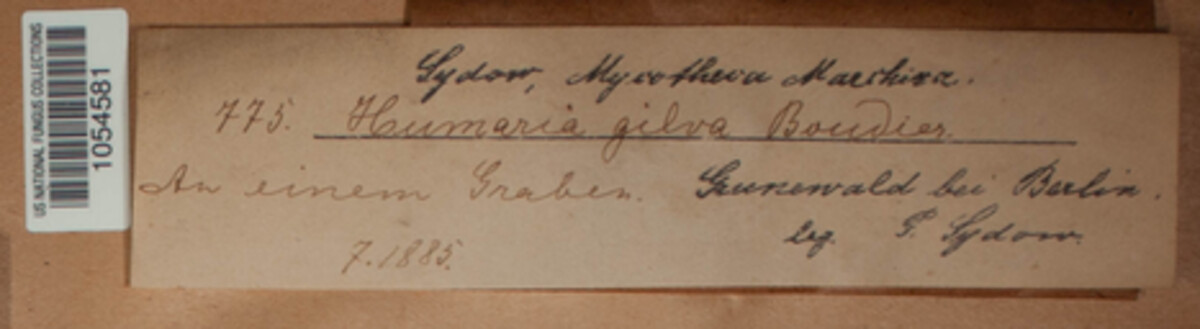 US NATIONAL FUNGUS COLLECTIONS
1054581
Sydow, Mycotheca Marchica.
775. Humaria gilva Boudier.
An einem Graben. Grunewald bei Berlin.
leg. P. Sydow.
7.1885.